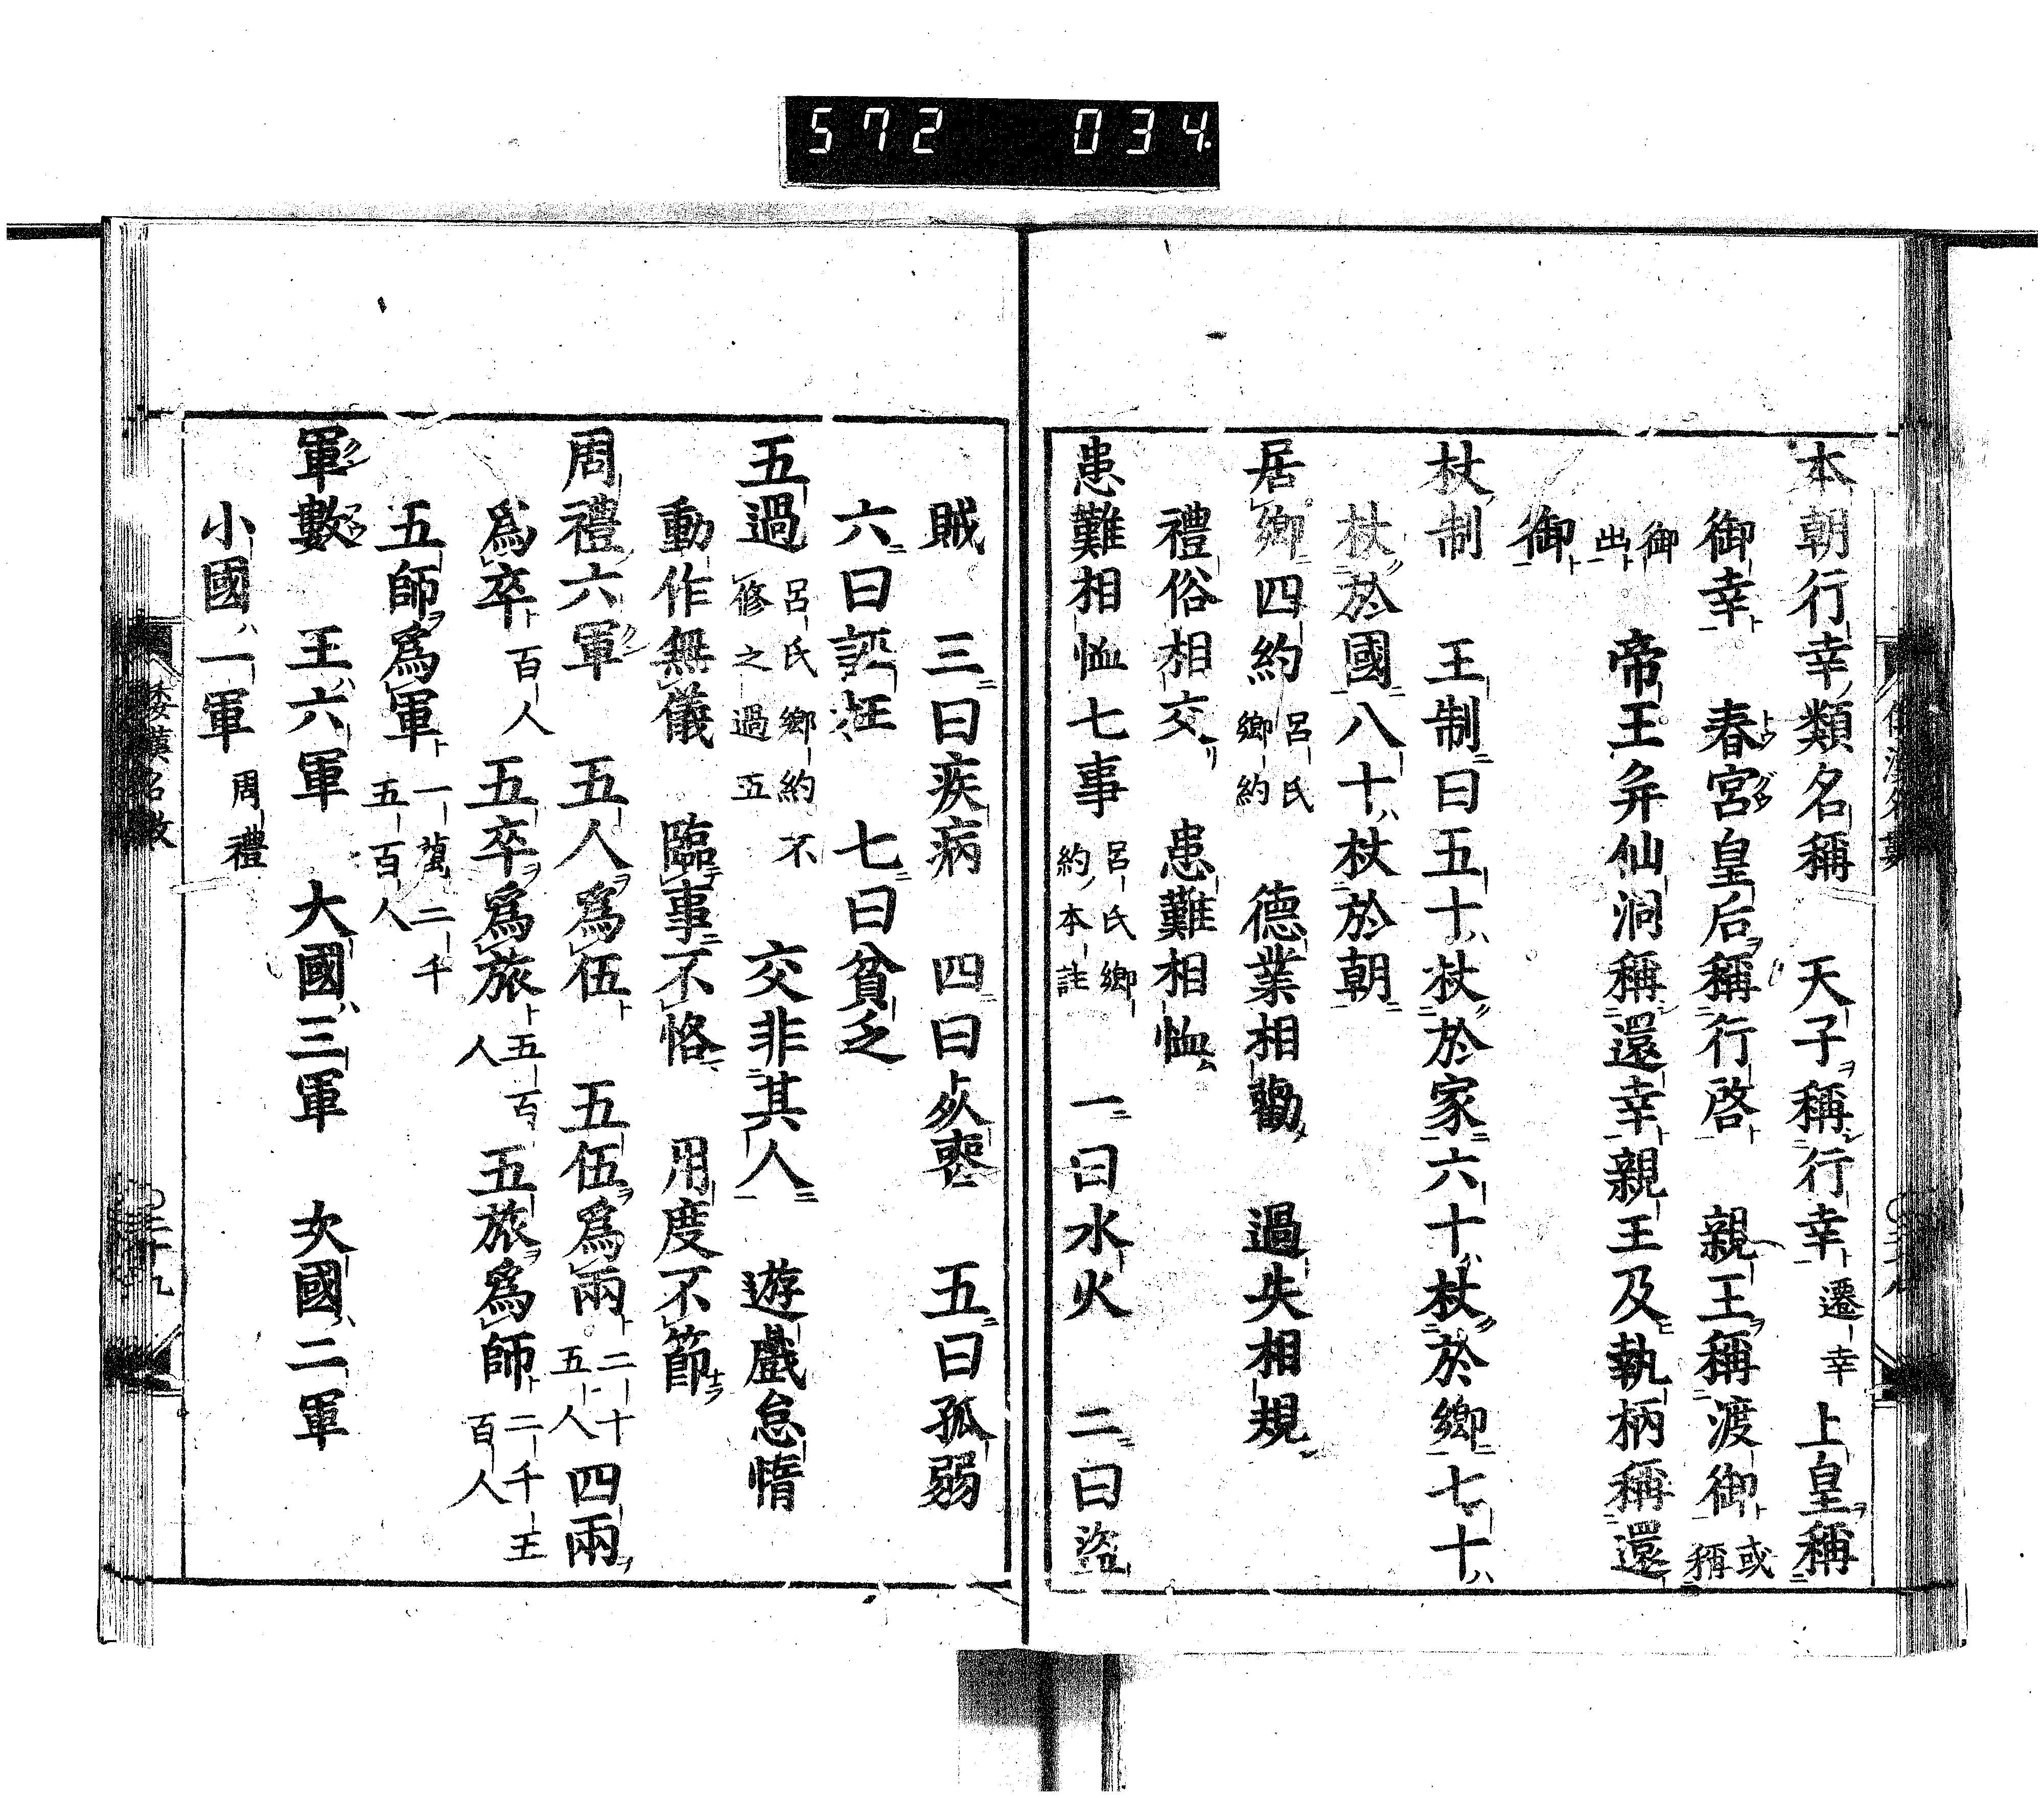 572 034
本朝行幸類名稱 天子稱行幸 遷幸 上皇稱
御幸 春宮皇后稱行啓 親王稱渡御 或稱
御出 帝王弁仙洞稱還幸親王及執柄稱還
御
杖制 王制曰五十杖於家六十杖於鄉七十
杖於國八十杖於朝
居鄉四約 呂氏鄉約 德業相勸 過失相規
禮俗相交 患難相恤
患難相恤七事 呂氏鄉約本註 一曰水火 二曰盜
賊 三曰疾病 四曰死喪 五曰孤弱
六曰誣枉 七曰貧乏
五過 呂氏鄉約不修之過五 交非其人 遊戲怠惰
動作無儀 臨事不恪 用度不節
周禮六軍 五人爲伍 五伍爲兩 二十五人 四兩
爲卒 百人 五卒爲旅 五百人 五旅爲師 二千五百人
五師爲軍 一萬二千五百人
軍數 王六軍 大國三軍 次國二軍
小國一軍 周禮